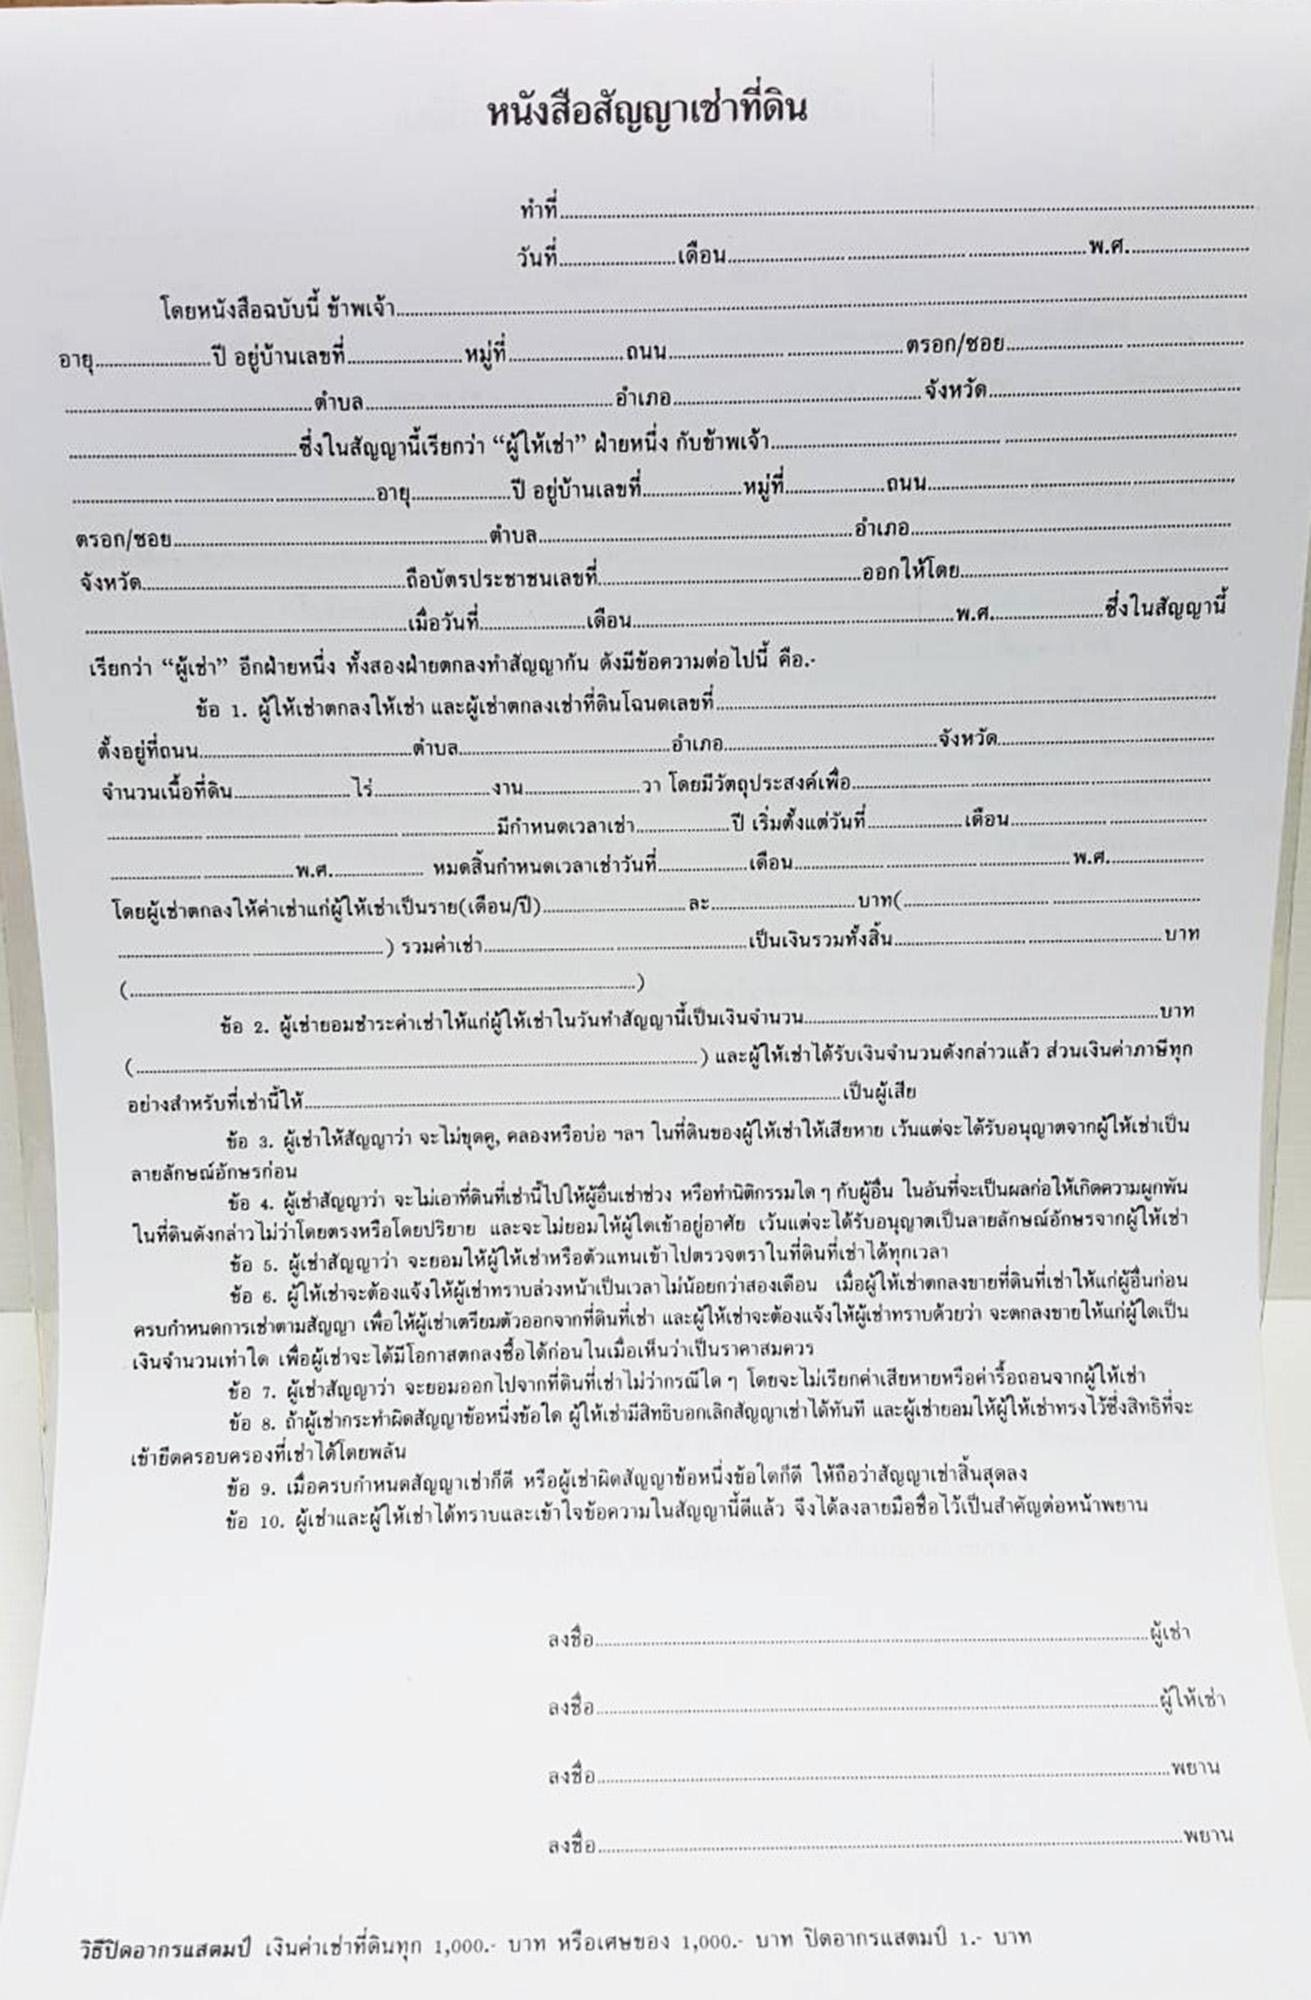 หนังสือสัญญาเช่าที่ดิน
ทำที่
วันที่ เดือน พ.ศ.
โดยหนังสือฉบับนี้ ข้าพเจ้า
อายุ ปี อยู่บ้านเลขที่ หมู่ที่ ถนน ตรอก/ซอย
ตำบล อำเภอ จังหวัด
ซึ่งในสัญญานี้เรียกว่า “ผู้ให้เช่า” ฝ่ายหนึ่ง กับข้าพเจ้า
อายุ ปี อยู่บ้านเลขที่ หมู่ที่ ถนน
ตรอก/ซอย ตำบล อำเภอ
จังหวัด ถือบัตรประชาชนเลขที่ ออกให้โดย
เมื่อวันที่ เดือน พ.ศ. ซึ่งในสัญญานี้
เรียกว่า “ผู้เช่า” อีกฝ่ายหนึ่ง ทั้งสองฝ่ายตกลงทำสัญญากัน ดังมีข้อความต่อไปนี้ คือ.-
ข้อ 1. ผู้ให้เช่าตกลงให้เช่า และผู้เช่าตกลงเช่าที่ดินโฉนดเลขที่
ตั้งอยู่ที่ถนน ตำบล อำเภอ จังหวัด
จำนวนเนื้อที่ดิน ไร่ งาน วา โดยมีวัตถุประสงค์เพื่อ
มีกำหนดเวลาเช่า ปี เริ่มตั้งแต่วันที่ เดือน
พ.ศ. หมดสิ้นกำหนดเวลาเช่าวันที่ เดือน พ.ศ.
โดยผู้เช่าตกลงให้ค่าเช่าแก่ผู้ให้เช่าเป็นราย(เดือน/ปี) ละ บาท(
) รวมค่าเช่า เป็นเงินรวมทั้งสิ้น บาท
( )
ข้อ 2. ผู้เช่ายอมชำระค่าเช่าให้แก่ผู้ให้เช่าในวันทำสัญญานี้เป็นเงินจำนวน บาท
( ) และผู้ให้เช่าได้รับเงินจำนวนดังกล่าวแล้ว ส่วนเงินค่าภาษีทุก
อย่างสำหรับที่เช่านี้ให้ เป็นผู้เสีย
ข้อ 3. ผู้เช่าให้สัญญาว่า จะไม่ขุดคู, คลองหรือบ่อ ฯลฯ ในที่ดินของผู้ให้เช่าให้เสียหาย เว้นแต่จะได้รับอนุญาตจากผู้ให้เช่าเป็น
ลายลักษณ์อักษรก่อน
ข้อ 4. ผู้เช่าสัญญาว่า จะไม่เอาที่ดินที่เช่านี้ไปให้ผู้อื่นเช่าช่วง หรือทำนิติกรรมใด ๆ กับผู้อื่น ในอันที่จะเป็นผลก่อให้เกิดความผูกพัน
ในที่ดินดังกล่าวไม่ว่าโดยตรงหรือโดยปริยาย และจะไม่ยอมให้ผู้ใดเข้าอยู่อาศัย เว้นแต่จะได้รับอนุญาตเป็นลายลักษณ์อักษรจากผู้ให้เช่า
ข้อ 5. ผู้เช่าสัญญาว่า จะยอมให้ผู้ให้เช่าหรือตัวแทนเข้าไปตรวจตราในที่ดินที่เช่าได้ทุกเวลา
ข้อ 6. ผู้ให้เช่าจะต้องแจ้งให้ผู้เช่าทราบล่วงหน้าเป็นเวลาไม่น้อยกว่าสองเดือน เมื่อผู้ให้เช่าตกลงขายที่ดินที่เช่าให้แก่ผู้อื่นก่อน
ครบกำหนดการเช่าตามสัญญา เพื่อให้ผู้เช่าเตรียมตัวออกจากที่ดินที่เช่า และผู้ให้เช่าจะต้องแจ้งให้ผู้เช่าทราบด้วยว่า จะตกลงขายให้แก่ผู้ใดเป็น
เงินจำนวนเท่าใด เพื่อผู้เช่าจะได้มีโอกาสตกลงซื้อได้ก่อนในเมื่อเห็นว่าเป็นราคาสมควร
ข้อ 7. ผู้เช่าสัญญาว่า จะยอมออกไปจากที่ดินที่เช่าไม่ว่ากรณีใด ๆ โดยจะไม่เรียกค่าเสียหายหรือค่ารื้อถอนจากผู้ให้เช่า
ข้อ 8. ถ้าผู้เช่ากระทำผิดสัญญาข้อหนึ่งข้อใด ผู้ให้เช่ามีสิทธิบอกเลิกสัญญาเช่าได้ทันที และผู้เช่ายอมให้ผู้ให้เช่าทรงไว้ซึ่งสิทธิที่จะ
เข้ายึดครอบครองที่เช่าได้โดยพลัน
ข้อ 9. เมื่อครบกำหนดสัญญาเช่าก็ดี หรือผู้เช่าผิดสัญญาข้อหนึ่งข้อใดก็ดี ให้ถือว่าสัญญาเช่าสิ้นสุดลง
ข้อ 10. ผู้เช่าและผู้ให้เช่าได้ทราบและเข้าใจข้อความในสัญญานี้ดีแล้ว จึงได้ลงลายมือชื่อไว้เป็นสำคัญต่อหน้าพยาน
ลงชื่อ ผู้เช่า
ลงชื่อ ผู้ให้เช่า
ลงชื่อ พยาน
ลงชื่อ พยาน
วิธีปิดอากรแสตมป์ เงินค่าเช่าที่ดินทุก 1,000.- บาท หรือเศษของ 1,000.- บาท ปิดอากรแสตมป์ 1.- บาท